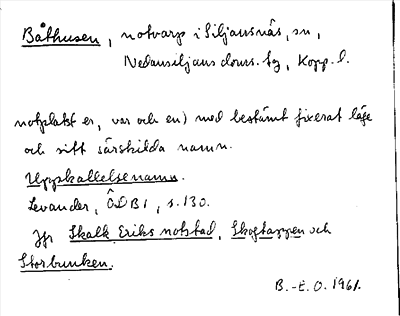 Båthusen, notvarp i Siljansnäs, sn,
Nedansiljans doms. tg, Kopp. l.
notplatser, var och en) med bestämt fixerat läge
och sitt särskilda namn.
Uppkallelsenamn.
Levander, ÖDB1, s. 130.
Jfr Skalk Eriks notstad, Skogtappen och
Storbunken.
B.-E. O. 1961.